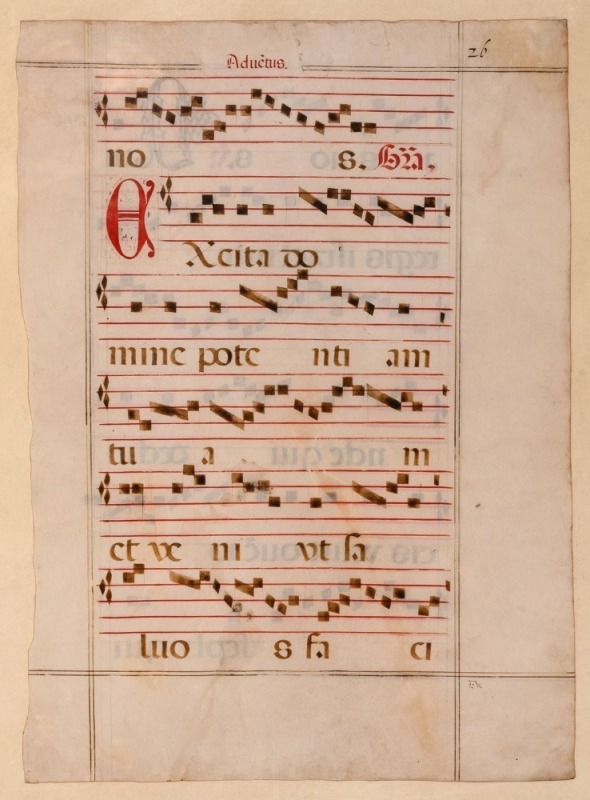 Aduẽtus. 26
no s.
EXcita do
mine pote nti am
tu a m
et ve ni vt sa
luo s fa ci